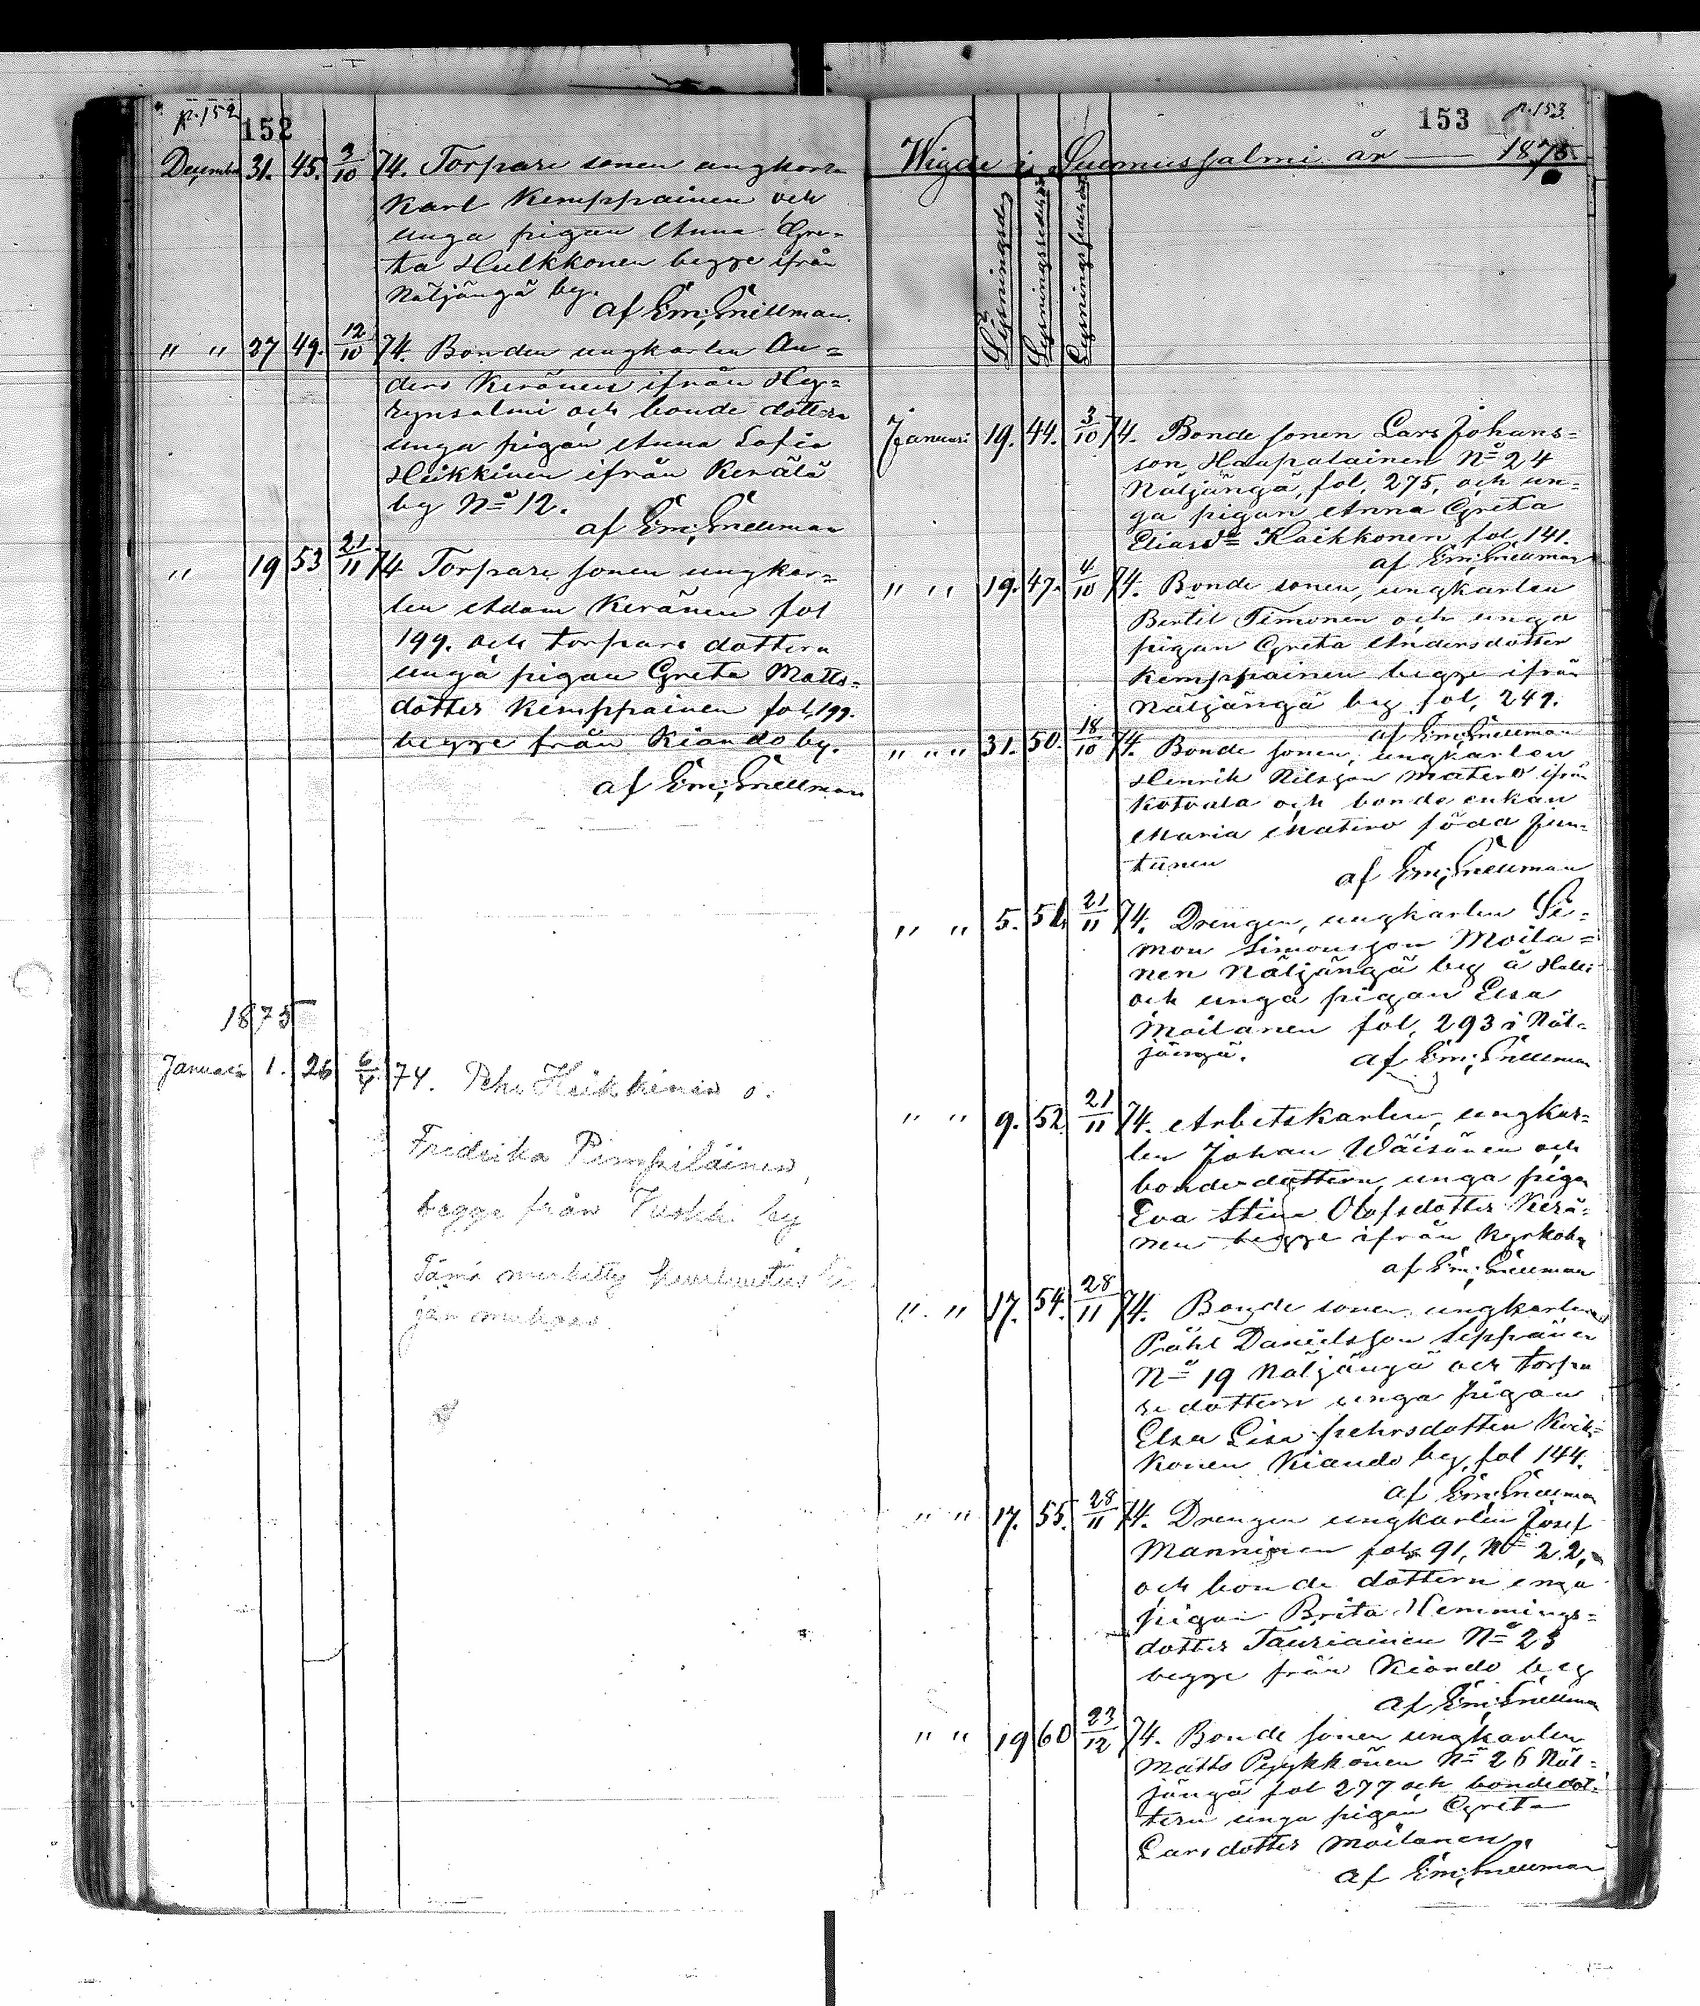 p. 152
152
December 31. 45. 3/10 74. Torpare sonen ungkarlen
Karl Kemppainen och
unga pigan Anna Gre=
ta Hulkkonen begge ifrån
Näljängä by.
af Em; Snellman.
" " 27 49. 12/10 74. Bonden ungkarlen An=
ders Keränen ifrån Hy=
rynsalmi och bonde dottern
unga pigan Anna Sofia
Heikkinen ifrån Kerälä
by No 12.
af Em; Snellman
" 19 53 21/11 74 Torpare sonen ungkar=
len Adam Keränen fol
199. och torpare dottern
unga pigan Greta Matts=
dotter Kemppainen fol, 199.
begge från Kiando by.
af Em; Snellman
1875
Januari 1. 26 6/4 74. Pehr Heikkinen o.
Fredrika Pimpiläinen,
begge från by
Tämä merkitty kuulu
jän mukaan.
153 p. 153
Wigde i Suomussalmi år — 1875.
Lysningsdag
Lysningssedel
Januari 19. 44. 3/10 74. Bonde sonen Lars Johans=
son Haapalainen No 24
Näljängä, fol, 275, och un=
ga pigan Anna Greta
Eliasdr Kaikkonen fol 141.
af Em; Snellman
" " 19. 47. 4/10 74. Bonde sonen, ungkarlen
Bertil Timonen och unga
pigan Greta Andersdotter
Kemppainen begge ifrån
Näljängä by fol, 249.
af Em; Snellman
" " " 31. 50. 18/10 74. Bonde sonen, ungkarlen
Henrik Nilsson Matero ifrån
Kotvala och bonde enkan
Maria Matero född Jun=
tunen
af Em; Snellman
" " 5. 51 21/11 74. Drengen, ungkarlen Si=
mon Simonsson Moila=
nen Näljängä by å
och unga pigan Elsa
Moilanen fol, 293 i Näl=
jängä.
af Em; Snellman
" " 9. 52 21/11 74. Arbetskarlen, ungkar=
len Johan Wäisänen och
bondedottern, unga pigan
Eva Stina Olofsdotter Kerä=
nen begge ifrån Kyrkoby
af Em; Snellman
" " 17. 54. 28/11 74. Bonde sonen ungkarlen
Påhl Danielsson Seppänen
No 19 Näljängä och torpa
re dottern unga pigan
Elsa Lisa Pehrsdotter Kaik=
konen Kiando by, fol 144.
af Em; Snellman
" " 17. 55. 28/11 74. Drengen ungkarlen Josef
Manninen fol, 91, No 22,
och bonde dottern unga
pigan Brita Hemmings=
dotter Tauriainen No 23
begge från Kiando by
af Em; Snellman
" " 19 60 23/12 74. Bonde sonen ungkarlen
Matts Pyykkönen No 26 Näl=
jängä fol 277 och bondedot=
tern unga pigan Greta
Larsdotter Moilanen.
af Em; Snellman